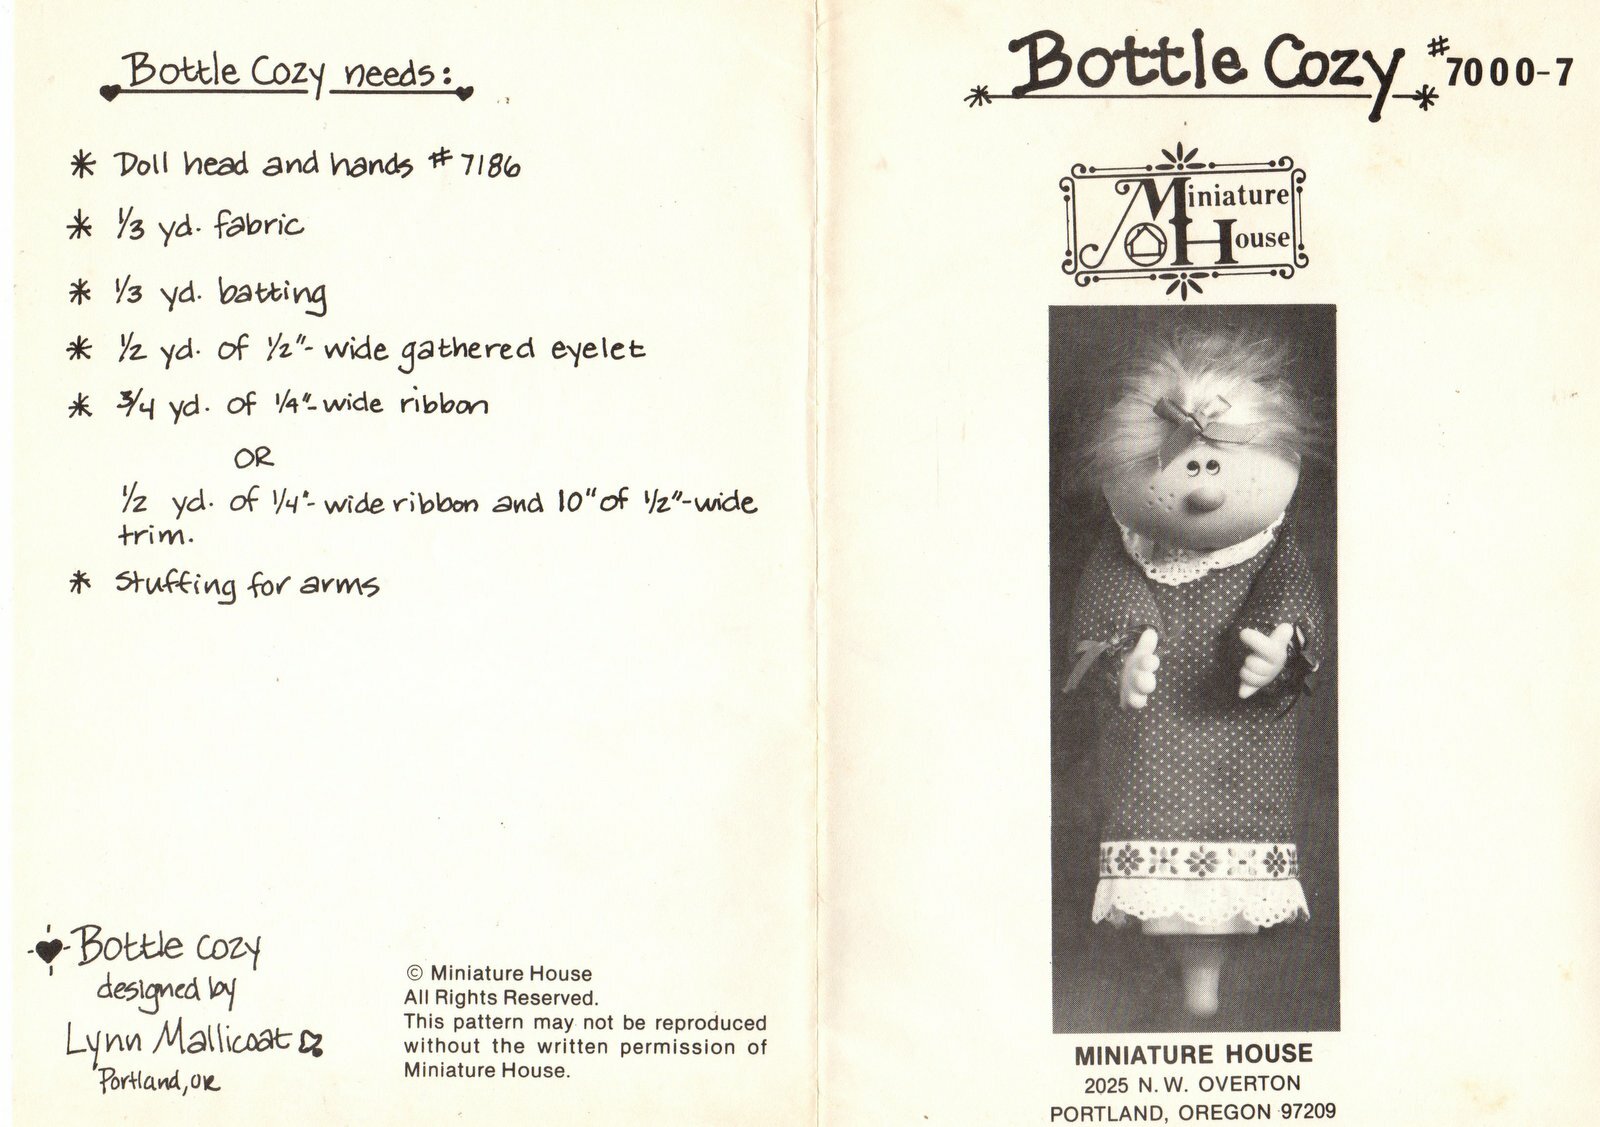 Bottle Cozy needs:
* Doll head and hands #7186
* 1/3 yd. fabric
* 1/3 yd. batting
* 1/2 yd. of 1/2"-wide gathered eyelet
* 3/4 yd. of 1/4"-wide ribbon
OR
1/2 yd. of 1/4"-wide ribbon and 10" of 1/2"-wide
trim.
* Stuffing for arms
Bottle Cozy
designed by
Lynn Mallicoat
Portland, OR
© Miniature House
All Rights Reserved.
This pattern may not be reproduced
without the written permission of
Miniature House.
Bottle Cozy #7000-7
Miniature
House
MINIATURE HOUSE
2025 N.W. OVERTON
PORTLAND, OREGON 97209